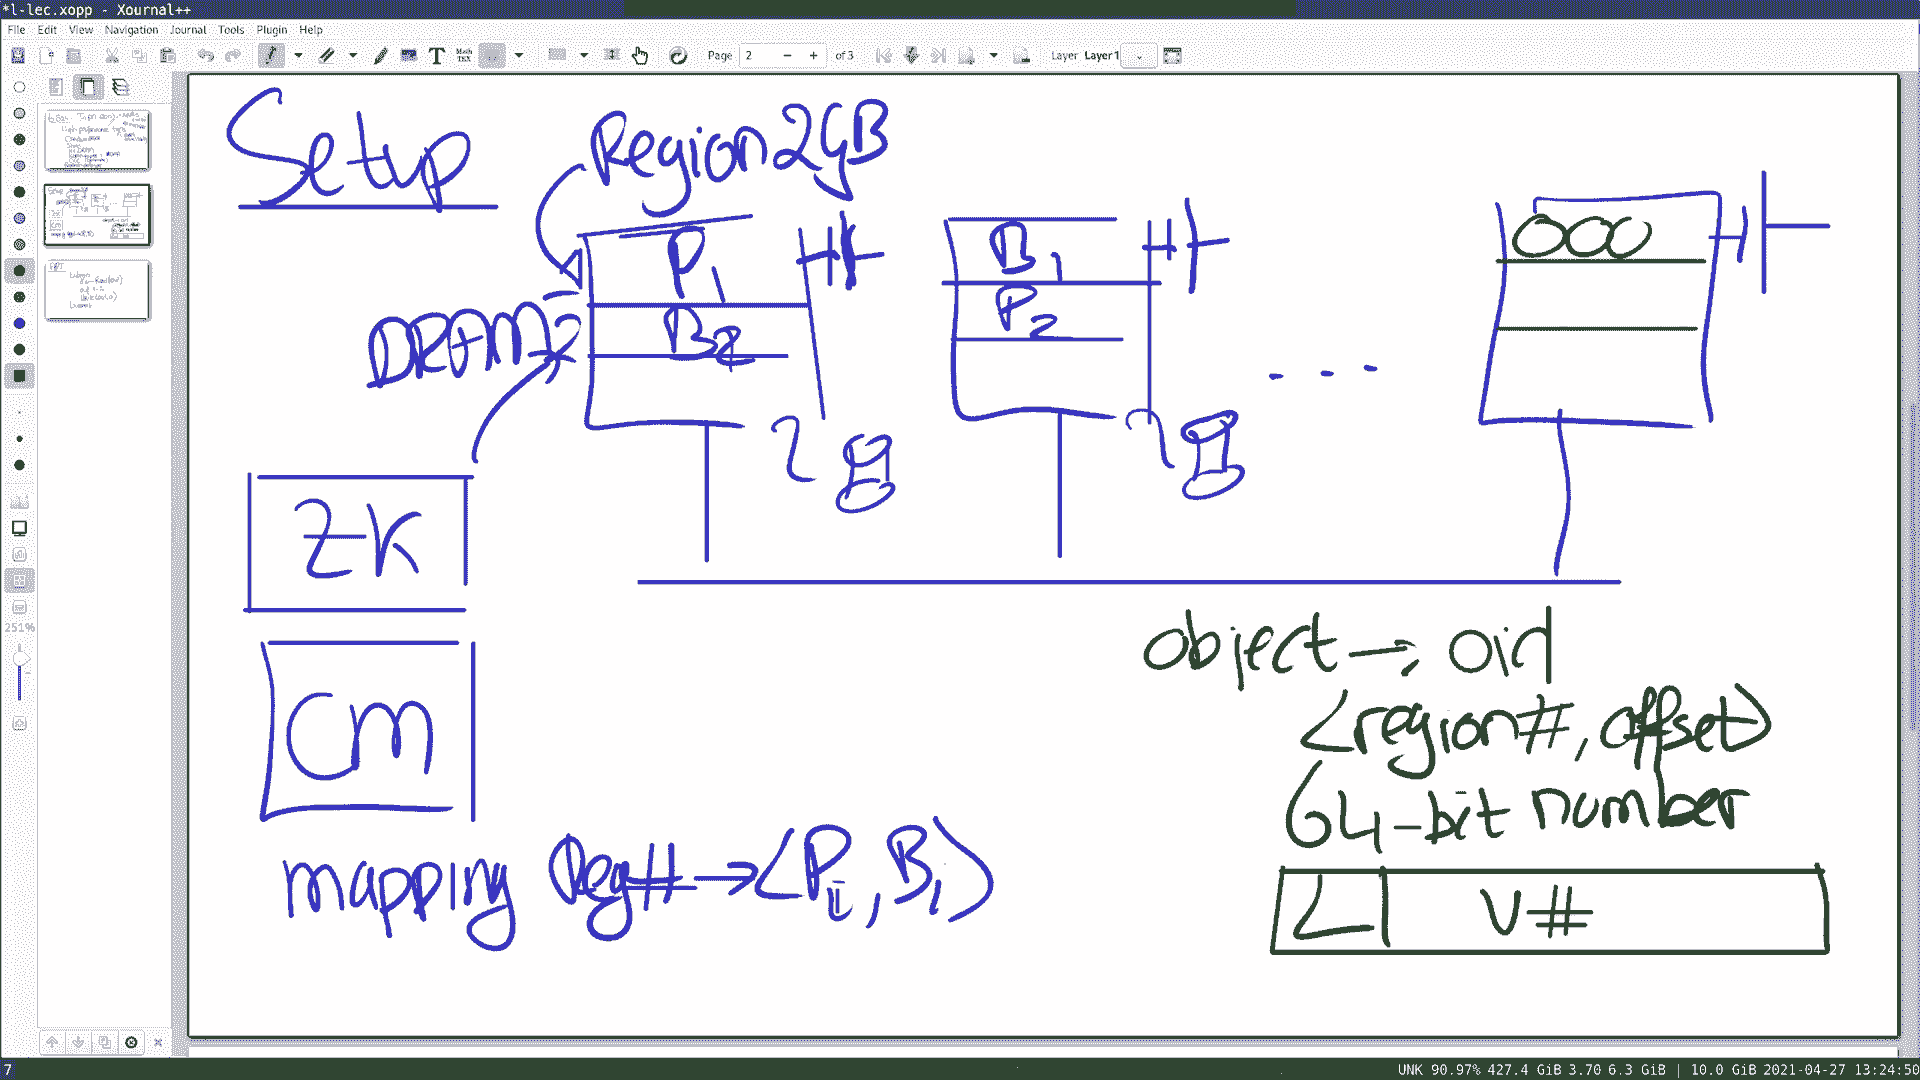 *l-lec.xopp - Xournal++
File Edit View Navigation Journal Tools Plugin Help
Page 2 of 3 Layer Layer1
251%
Setup
Region 2GB
P1
B2
B1
P2
OOO
DRAM
...
ZK
CM
object → oid
<region#, offset>
64-bit number
L V#
mapping Reg# → <P1, B1>
7
UNK 90.97% 427.4 GiB 3.70 6.3 GiB | 10.0 GiB 2021-04-27 13:24:50